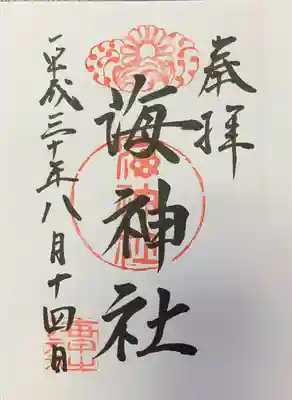 奉拝
海神社
平成三十年八月十四日